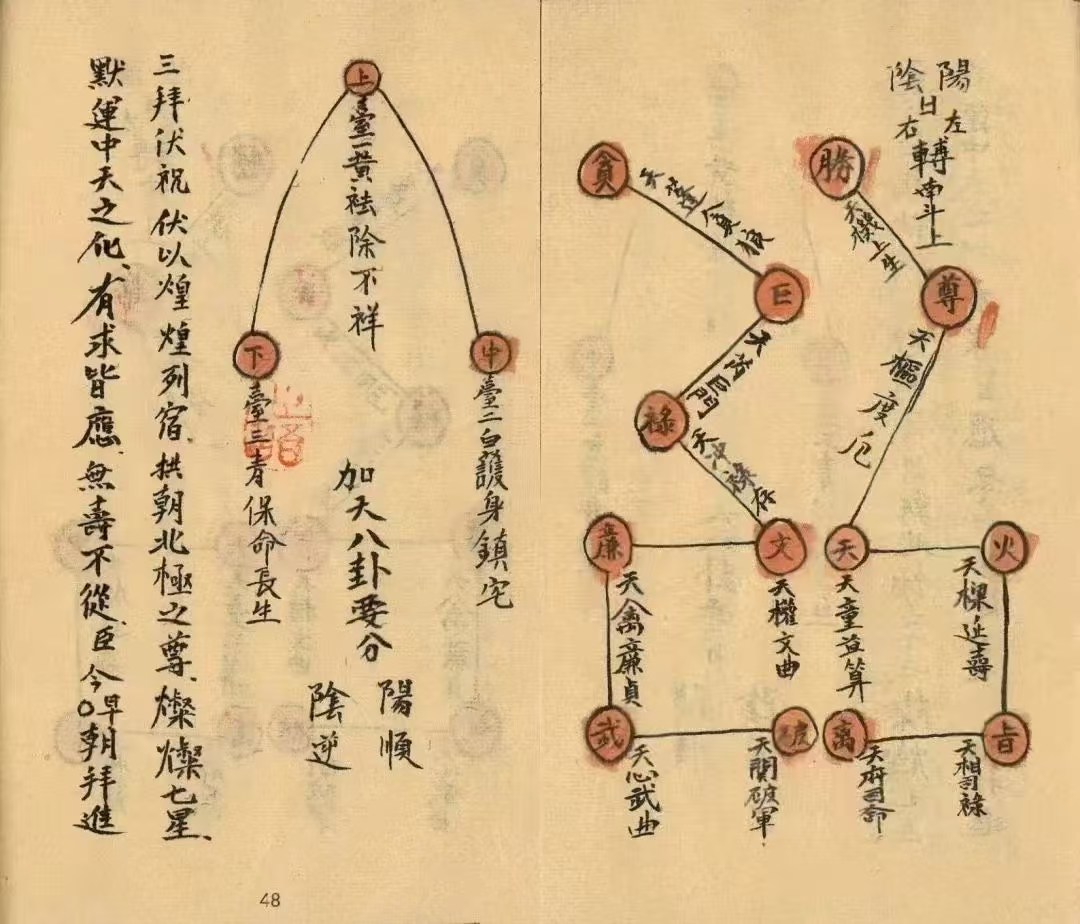 陰陽
日
右左
轉
南斗上
勝
天機上生
尊
天樞度厄
天
天童益算
火
天樑延壽
旨
天相司祿
离
天府司命
貪
天蓬貪狼
巨
天芮巨門
祿
天冲祿存
文
天權文曲
廉
天禽廉貞
武
天心武曲
破
天關破軍
上
臺一黃祛除不祥
中
臺二白護身鎮宅
下
臺三青保命長生
加天八卦要分
陽順
陰逆
三拜伏祝伏以煌煌列宿、拱朝北極之尊、燦燦七星、
默運中天之化、有求皆應、無壽不從、臣今早○朝拜進
48